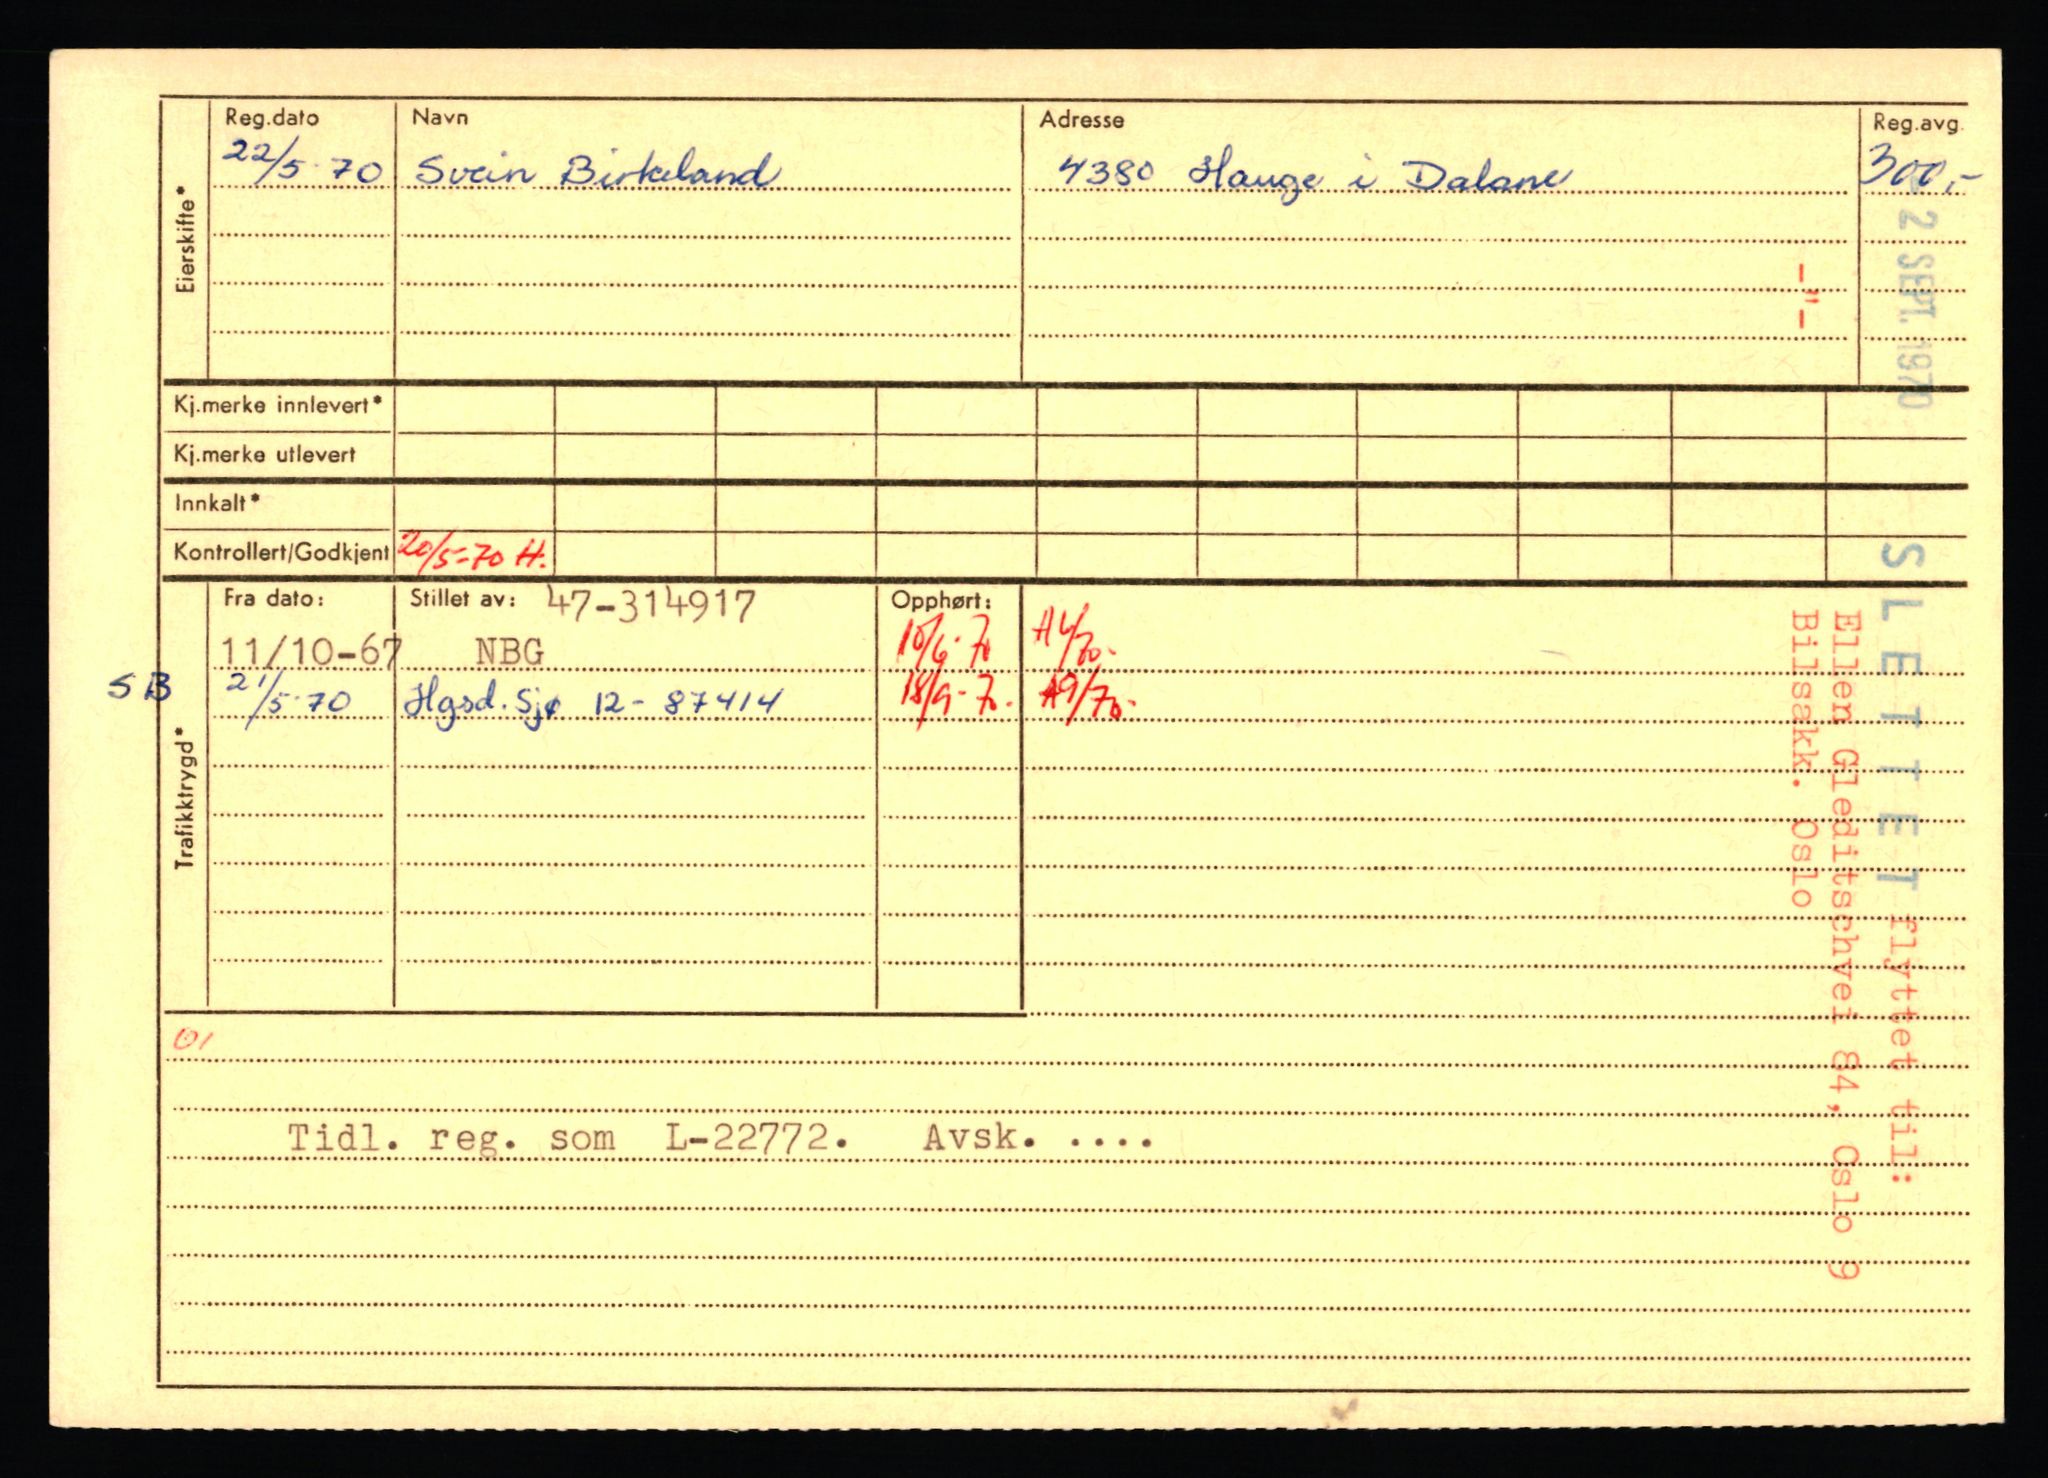 Reg.dato Navn Adresse Reg.avg.
22/5-70 Svein Birkeland 4380 Hauge i Dalane 300,-
Eierskifte*
Kj.merke innlevert*
Kj.merke utlevert
Innkalt*
Kontrollert/Godkjent 20/5-70 H.
Fra dato: Stillet av: 47-314917 Opphørt:
11/10-67 NBG 10/6-70 A6/70.-
SB 21/5-70 Hgsd. Sjø 12-87414 18/9-70. A9/70.-
Trafikktrygd*
01
Tidl. reg. som L-22772. Avsk. ....
2 SEPT. 1970
SLETTET flyttet til:
Ellen Gleditschvei 84, Oslo 9
-"- Bilsakk. Oslo